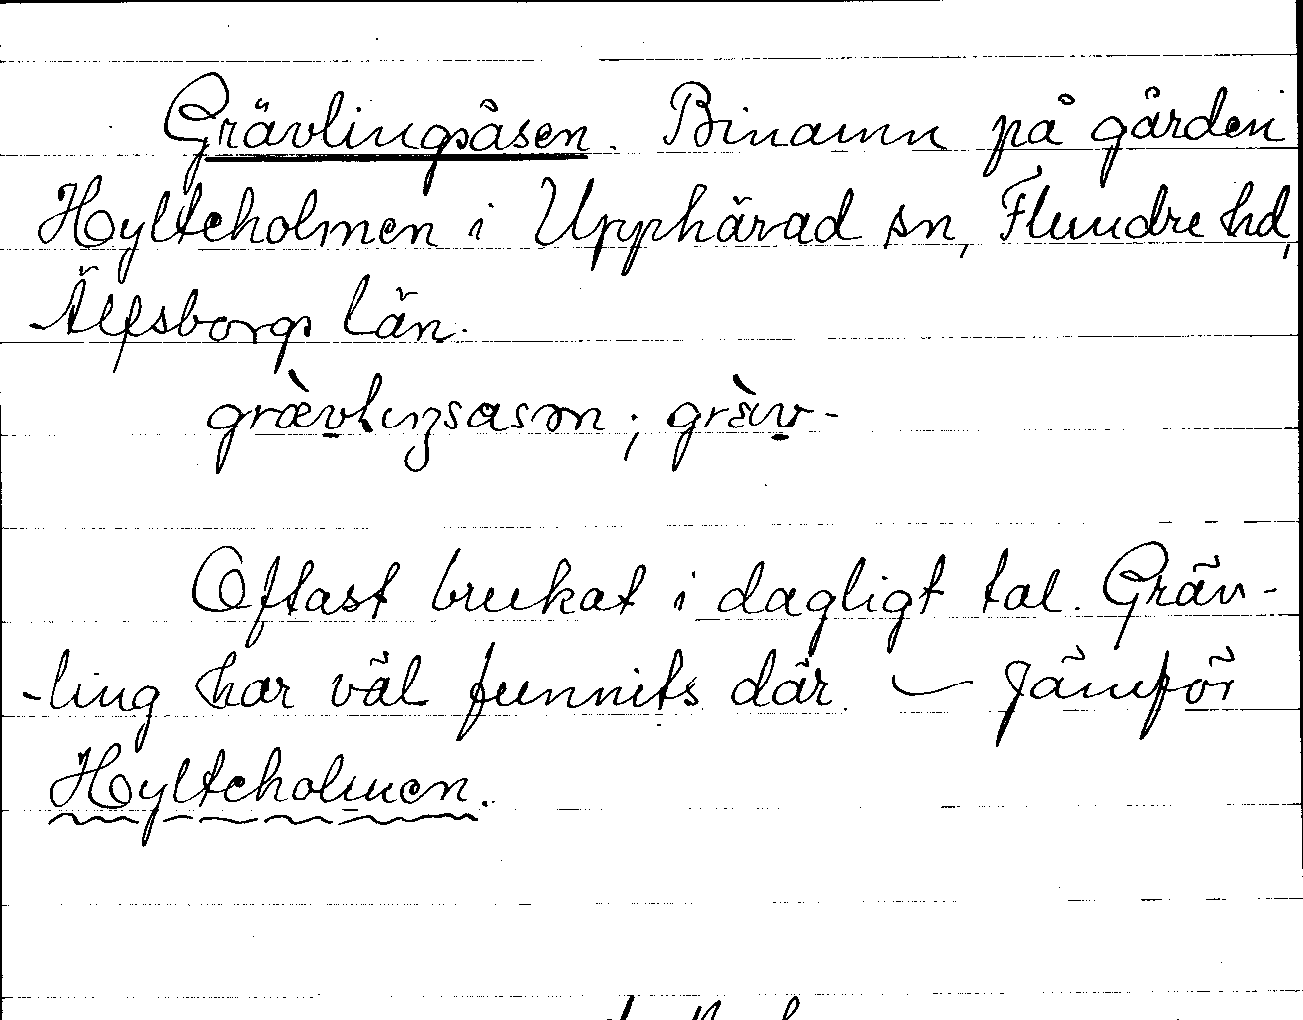 Grävlingsåsen. Binamn på gården
Hylteholmen i Upphärad sn, Flundre hd,
Älfsborgs län.
grævlıŋsasən; grèıv-
Oftast brukat i dagligt tal. Gräv-
-ling har väl funnits där. — Jämför
Hylteholmen.